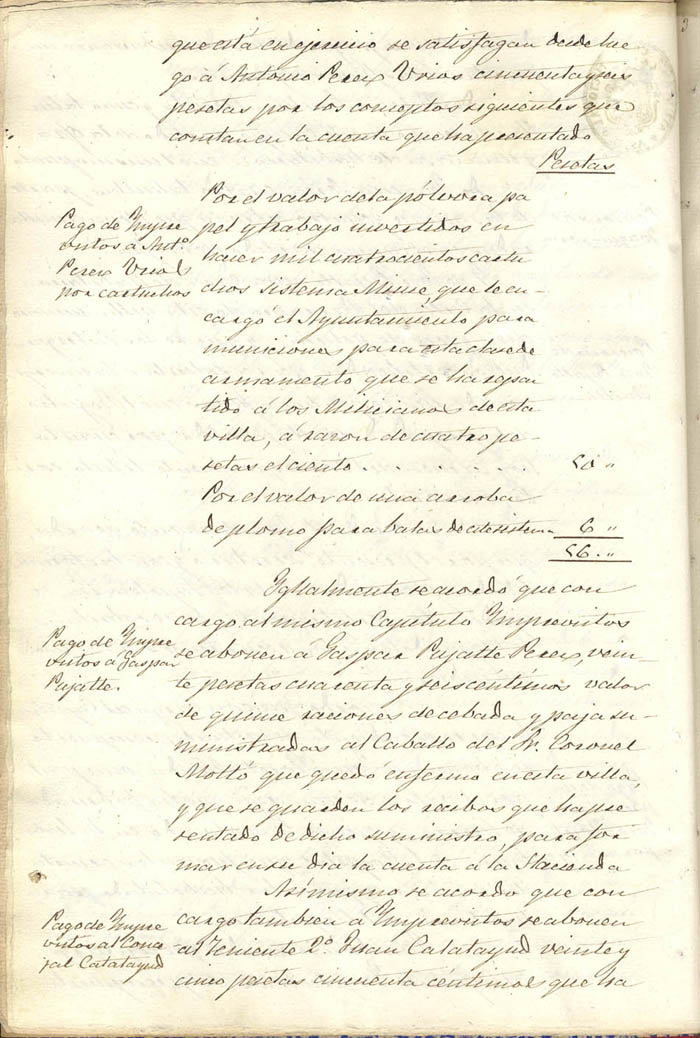 que está en ejercicio se satisfagan desde lue
go á Antonio Perez Vrios cincuenta y seis
pesetas por los conceptos siguientes que
constan en la cuenta que ha presentado
Pesetas
Pago de Impre
vistos á Antº
Perez Vrios
por cartuchos
Por el valor de la pólvora pa
pel y trabajo invertidos en
hacer mil cuatrocientos cartu
chos sistema Minié, que le en-
cargó el Ayuntamiento para
municiones para esta clase de
armamento que se ha repar
tido á los Milicianos de esta
villa, á razon de cuatro pe-
setas el ciento . . . . . . . 50 "
Por el valor de una arroba
de plomo para balas de este sistema 6 "
56 . "
Pago de Impre
vistos á Gaspar
Pujalte.
Igualmente se acordó que con
cargo al mismo Capítulo Imprevistos
se abonen á Gaspar Pujalte Perez, vein-
te pesetas cuarenta y seis céntimos valor
de quince raciones de cebada y paja su-
ministradas al Caballo del Sr. Coronel
Moltó que quedó enfermo en esta villa,
y que se guarden los recibos que ha pre
sentado de dicho suministro, para for
mar en su dia la cuenta á la Hacienda
Pago de Impre
vistos al Conce
jal Calatayud
Asimismo se acordo que con
cargo tambien á Imprevistos se abonen
al Teniente 2º Juan Calatayud veinte y
cinco pesetas cincuenta céntimos que ha